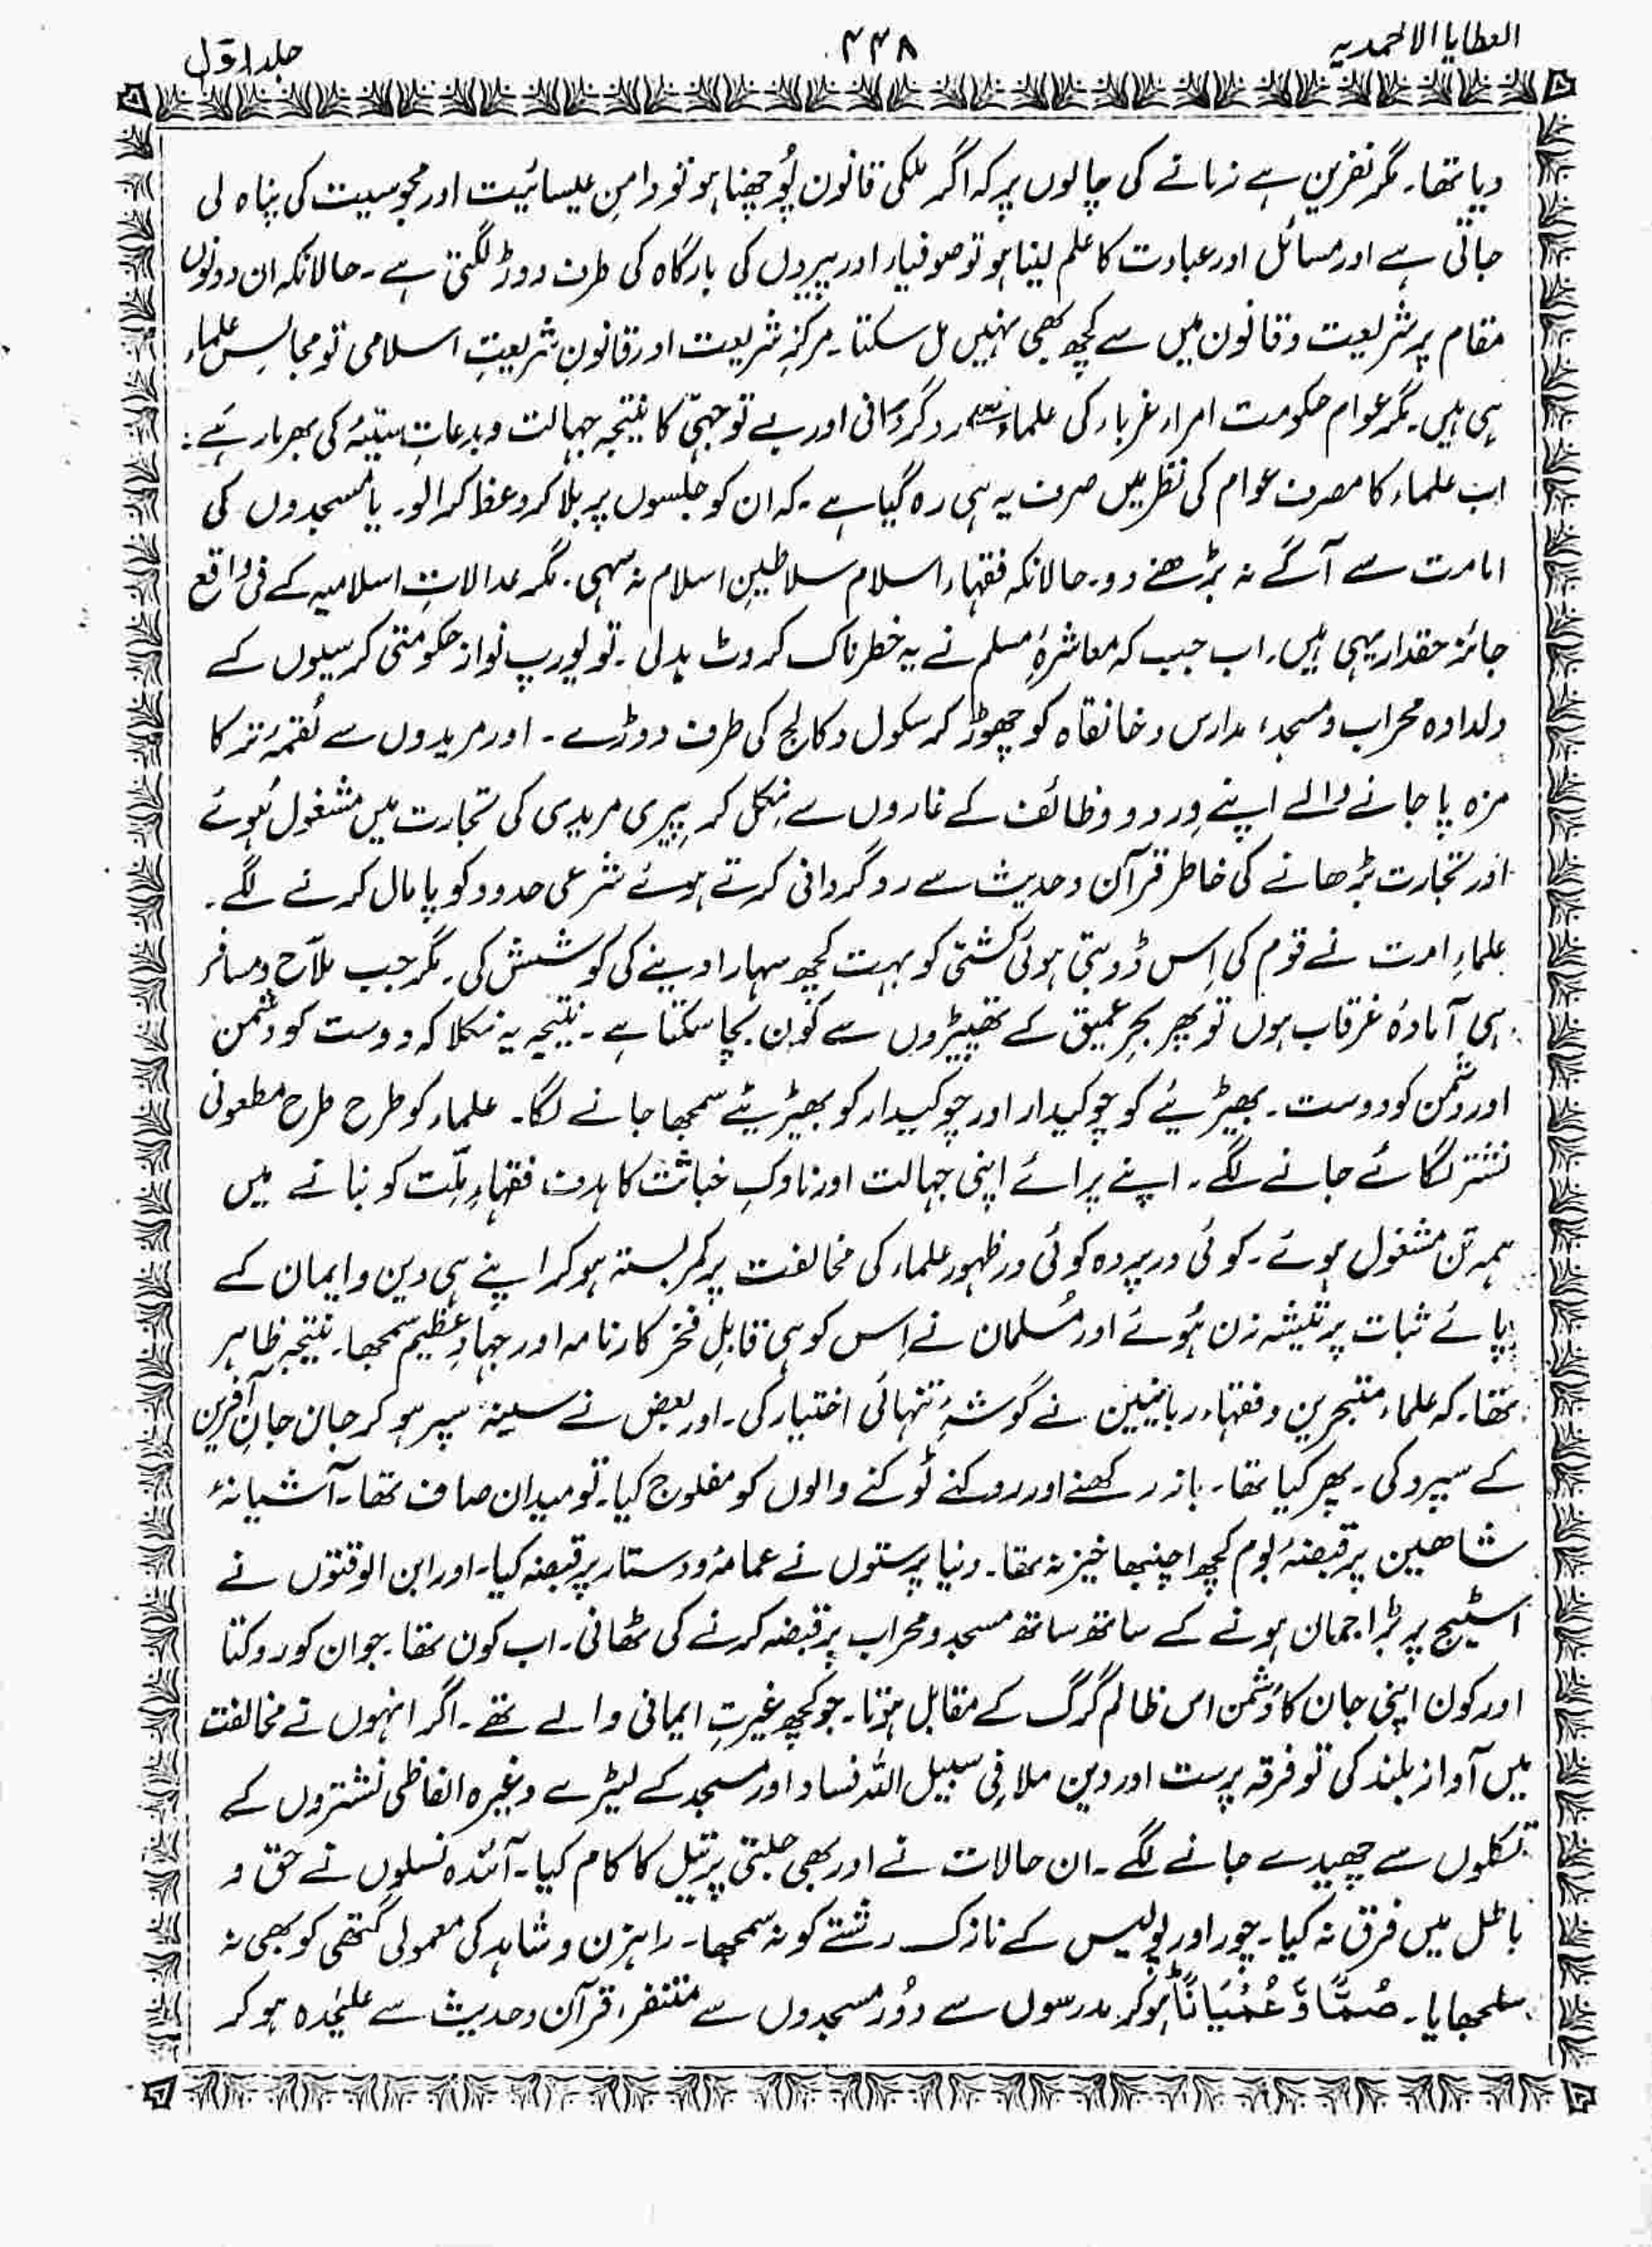 العطایا الاحمدیہ
۴۴۸
جلد اوّل
دیا تھا۔ مگر نفرین ہے زمانے کی چالوں پر کہ اگر ملکی قانون پُوچھنا ہو تو دامنِ عیسائیت اور مجوسیت کی پناہ لی
جاتی ہے اور مسائل اور عبادت کا علم لینا ہو تو صوفیاء اور پیروں کی بارگاہ کی طرف دوڑ لگتی ہے۔ حالانکہ ان دونوں
مقام پر شریعت و قانون میں سے کچھ بھی نہیں مل سکتا۔ مرکزِ شریعت اور قانونِ شریعتِ اسلامی تو مجالسِ علماء
ہی ہیں۔ مگر عوام حکومت امراء غرباء کی علماء سے روگردانی اور بے توجہی کا نتیجہ جہالت و بدعاتِ سیّئہ کی بھرمار ہے:
اب علماء کا مصرف عوام کی نظر میں صرف یہ ہی رہ گیا ہے۔ کہ ان کو جلسوں پر بلا کر وعظ کرالو۔ یا مسجدوں کی
امامت سے آگے نہ بڑھنے دو۔ حالانکہ فقہاء اسلام سلاطینِ اسلام نہ سہی۔ مگر عدالاتِ اسلامیہ کے فی واقع
جائز حقدار یہی ہیں۔ اب جب کہ معاشرۂ مسلم نے یہ خطرناک کروٹ بدلی۔ تو یورپ نواز حکومتی کرسیوں کے
دلدادہ محراب و مسجد، مدارس و خانقاہ کو چھوڑ کر سکول و کالج کی طرف دوڑے۔ اور مریدوں سے لُقمۂ تر کا
مزہ پا جانے والے اپنے وِرد و وظائف کے غاروں سے نکل کر پیری مریدی کی تجارت میں مشغول ہُوئے
اور تجارت بڑھانے کی خاطر قرآن و حدیث سے روگردانی کرتے ہوئے شرعی حدود کو پامال کرنے لگے۔
علماءِ امت نے قوم کی اِس ڈوبتی ہوئی کشتی کو بہت کچھ سہارا دینے کی کوشش کی۔ مگر جب ملاّح و مسافر
ہی آمادۂ غرقاب ہوں تو پھر بحرِ عمیق کے تھپیڑوں سے کون بچا سکتا ہے۔ نتیجہ یہ نکلا کہ دوست کو دشمن
اور دشمن کو دوست۔ بھیڑیئے کو چوکیدار اور چوکیدار کو بھیڑیئے سمجھا جانے لگا۔ علماء کو طرح طرح مطعونی
نشتر لگائے جانے لگے۔ اپنے پرائے اپنی جہالت اور ناوکِ خباثت کا ہدف فقہاءِ مِلّت کو بنانے میں
ہمہ تن مشغول ہوئے۔ کوئی در پردہ کوئی در ظہور علماء کی مخالفت پر کمر بستہ ہو کر اپنے ہی دین و ایمان کے
پائے ثبات پر تیشہ زن ہُوئے اور مُسلمان نے اِس کو ہی قابلِ فخر کارنامہ اور جہادِ عظیم سمجھا۔ نتیجہ ظاہر
تھا۔ کہ علماء متبحرین و فقہاء ربانیین نے گوشۂ تنہائی اختیار کی۔ اور بعض نے سینہ سپر ہو کر جان جانِ آفرین
کے سپرد کی۔ پھر کیا تھا۔ باز رکھنے اور روکنے ٹوکنے والوں کو مفلوج کیا۔ تو میدان صاف تھا۔ آشیانۂ
شاھین پر قبضۂ بوم کچھ اچنبھا خیز نہ تھا۔ دنیا پرستوں نے عمامہ و دستار پر قبضہ کیا۔ اور ابن الوقتوں نے
اسٹیج پر براجمان ہونے کے ساتھ ساتھ مسجد و محراب پر قبضہ کرنے کی ٹھانی۔ اب کون تھا۔ جو ان کو روکتا
اور کون اپنی جان کا دُشمن اس ظالم گرگ کے مقابل ہوتا۔ جو کچھ غیرتِ ایمانی والے تھے۔ اگر انہوں نے مخالفت
میں آواز بلند کی تو فرقہ پرست اور دین ملا فِی سبیل اللہ فساد اور مسجد کے لیٹرے وغیرہ الفاظی نشتروں کے
تکلوں سے چھیدے جانے لگے۔ ان حالات نے اور بھی جلتی پر تیل کا کام کیا۔ آئندہ نسلوں نے حق و
باطل میں فرق نہ کیا۔ چور اور پولیس کے نازک رشتے کو نہ سمجھا۔ راہزن و شاہد کی معمولی گتھی کو بھی نہ
سلجھایا۔ صُمًّا وَّ عُمْیَانًا ہو کر مدرسوں سے دُور مسجدوں سے متنفر، قرآن و حدیث سے علیٰحدہ ہو کر